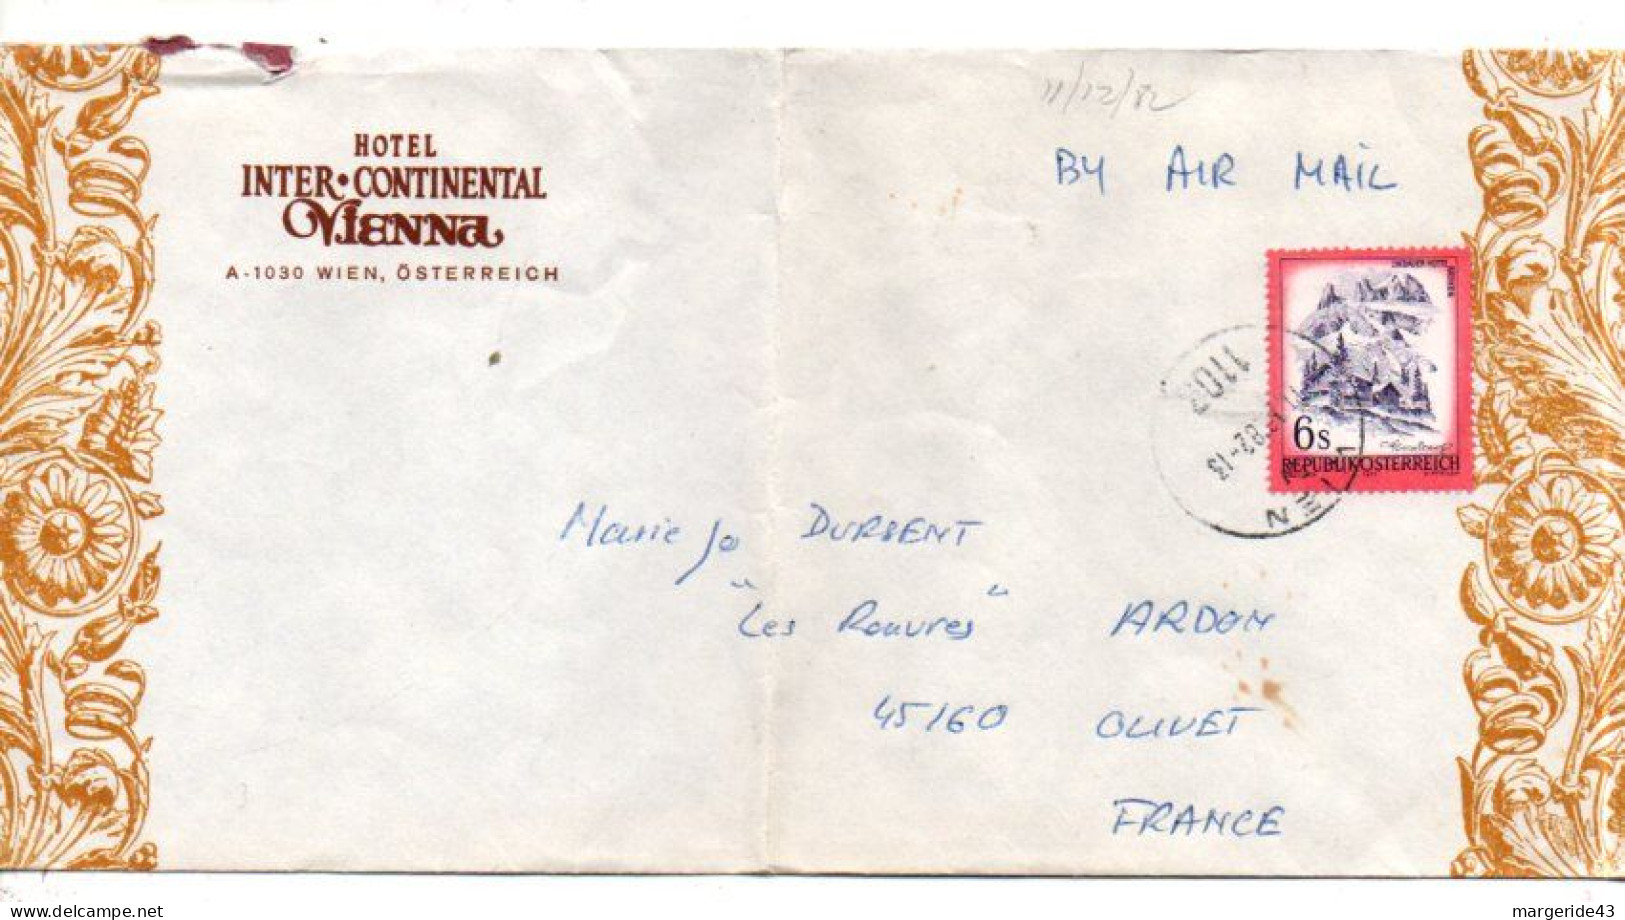 11/12/82
HOTEL
INTER•CONTINENTAL
VIENNA
A-1030 WIEN, ÖSTERREICH
BY AIR MAIL
LINDAUER HÜTTE
6s
REPUBLIK ÖSTERREICH
1103
82-13
WIEN
Marie Jo DURBENT
"Les Rouvres" ARDON
45160 OLIVET
FRANCE
delcampe.net
margeride43